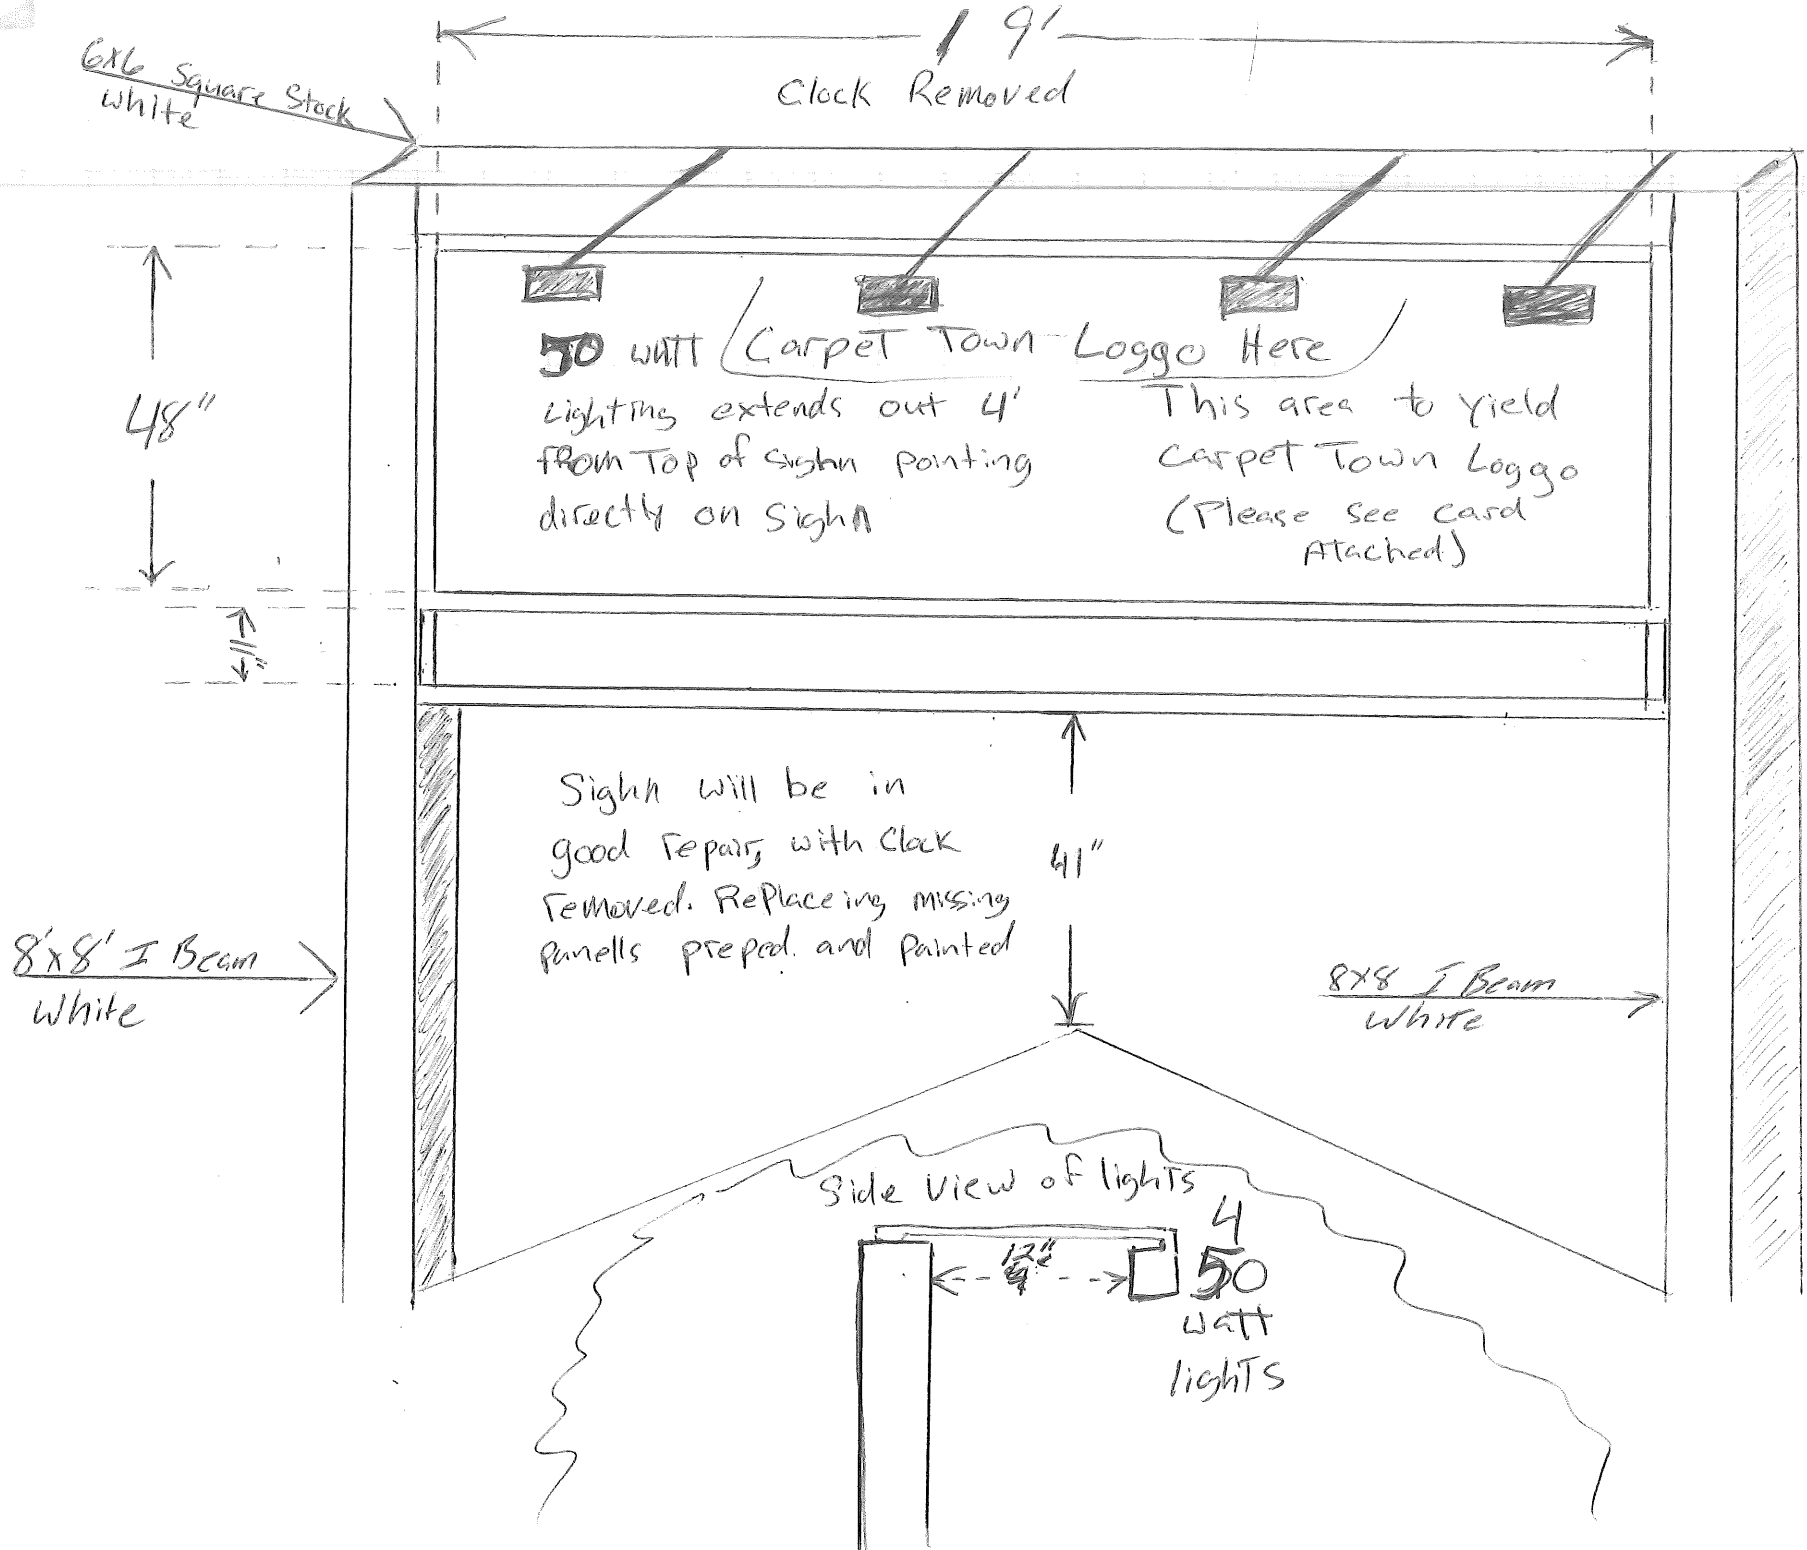 19'
Clock Removed
6x6 Square Stock
White
48"
11"
50 watt
Carpet Town Loggo Here
Lighting extends out 4'
from Top of Sighn pointing
directly on Sighn
This area to Yield
Carpet Town Loggo
(Please see card
Atached)
Sighn will be in
good repair, with Clock
removed. Replaceing missing
panells preped. and painted
41"
8'x8' I Beam
White
8x8 I Beam
White
Side View of lights
12"
4
50
watt
lights